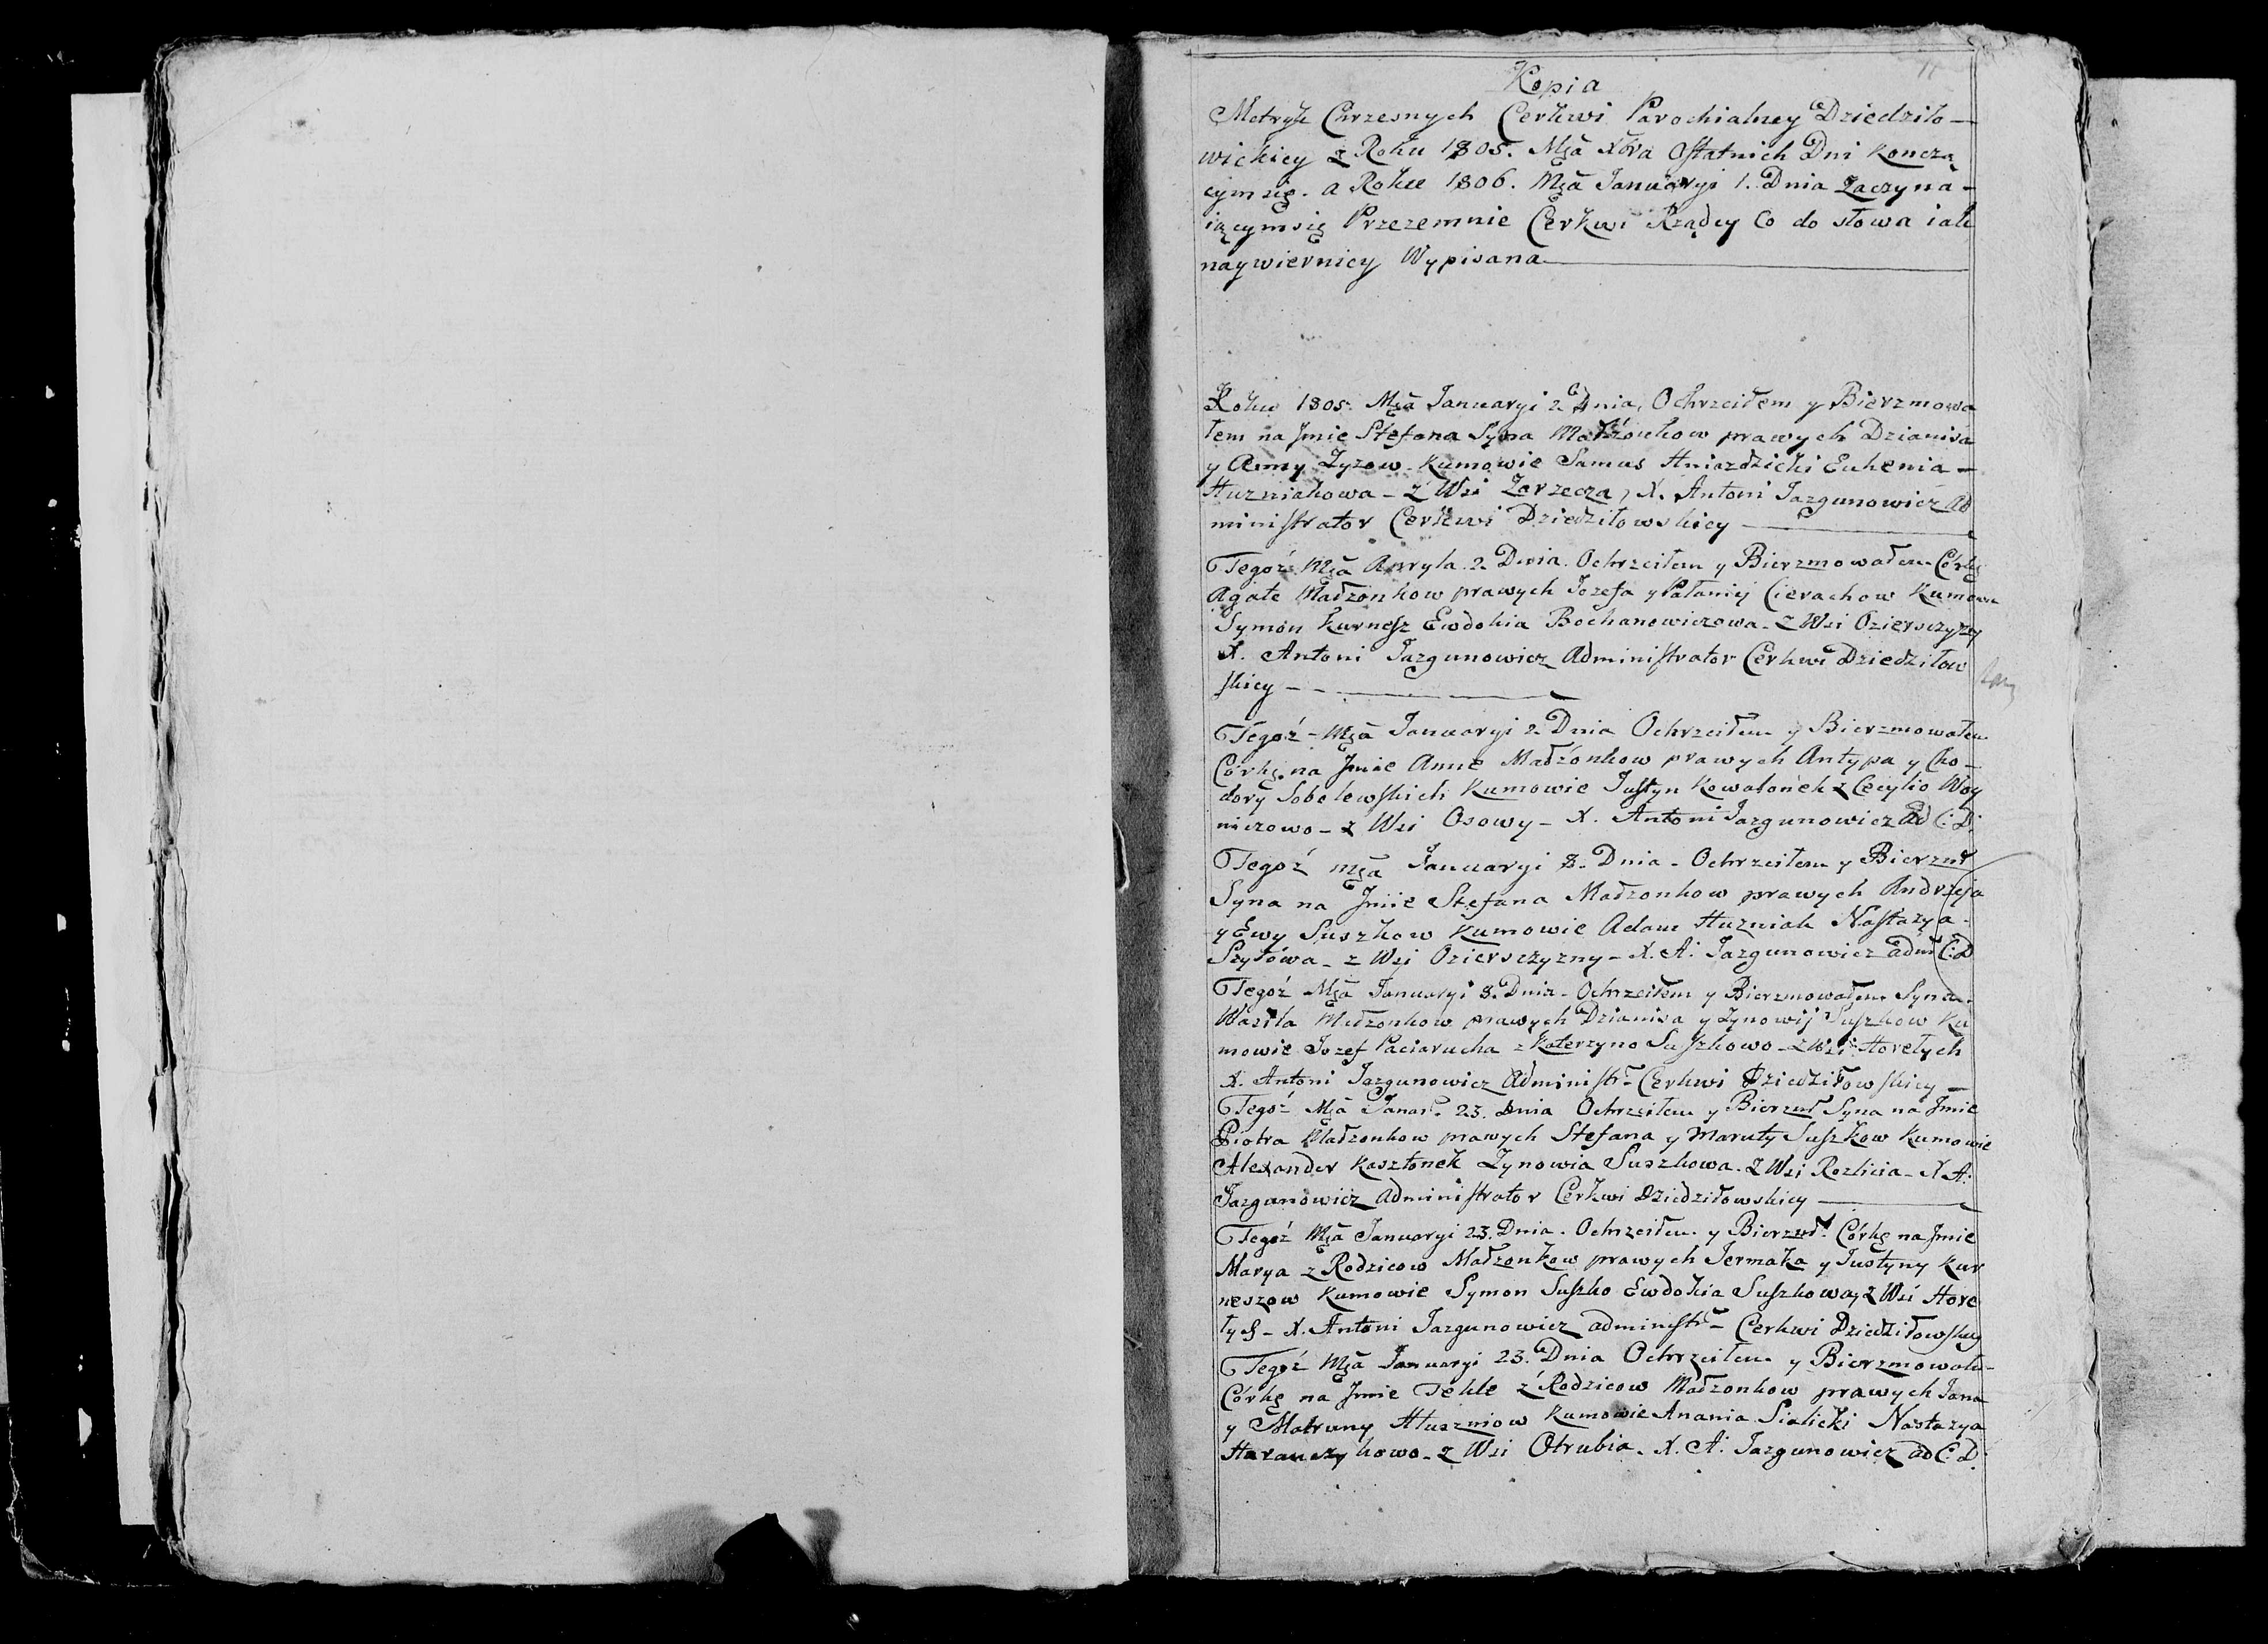 Kopia
Metryk Chrzesnych Cerkwi Parochialney Dziedziło-
wickiey z Roku 1805. Mca Xbra Ostatnich Dni koncza
cym się. a Roku 1806. Mca Januaryi 1. Dnia Zaczyna-
iącym się Przezemnie Cerkwi Rządcy Co do słowa iak
naywierniey Wypisana
Roku 1805. Mca Januaryi 2. Dnia, Ochrzciłem y Bierzmowa
łem na Jmie Stefana Syna Małżonkow prawych Dzianisa
y Anny Zyzow. Kumowie Samus Hniazdzicki Euhenia -
Huzniakowa - z Wsi Zarzecza, X. Antoni Jazgunowicz Ad
ministrator Cerkwi Dziedziłowskiey
Tegoż Mca Apryla 2. Dnia. Ochrzciłem y Bierzmowałem Córkę
Agate Małzonkow prawych Jozefa y Pałaniij Cierachow Kumowie
Symon Kurnesz Ewdokia Bochanowiczowa - z Wsi Ozierszyzny
X. Antoni Jazgunowicz Administrator Cerkwi Dziedziłow
skiey -
Tegoż - Mca Januaryi 2. Dnia Ochrzciłem y Bierzmowałem
Córkę na Jmie Anne Małżonkow prawych Antypa y Cho-
dory Sobolewskich Kumowie Justyn Kowalonek z Cecylio Woy
niczowo - z Wsi Osowy - X. Antoni Jazgunowicz Ad C: D:
Tegoż Mca Januaryi 8. Dnia - Ochrzciłem y Bierzmł
Syna na Jmie Stefana Małzonkow prawych Andrzeja
y Ewy Suszkow Kumowie Adam Huzniak Nastazya -
Szyłowa - z Wsi Ozierszczyzny - X. A: Jazgunowicz adm C: D
Tegoż Mca Januaryi 8. Dnia - Ochrzciłem y Bierzmowałem Syna
Wasila Małzonkow prawych Dzianisa y Zynowij Suszkow Ku
mowie Jozef Paciarucha z Katerzyno Suszkowo - z Wsi Horełych
X. Antoni Jazgunowicz Administr - Cerkwi Dziedziłowskiey -
Tegoż Mca Januar. 23. Dnia Ochrzciłem y Bierzmł Syna na Jmie
Piotra Małzonkow prawych Stefana y Maruty Suszkow Kumowie
Alexander Kasztonek Zynowia Suszkowa. z Wsi Rozlicia - X. A:
Jazgunowicz Administrator Cerkwi Dziedziłowskiey
Tegoż Mca Januaryi 23. Dnia. Ochrzciłem y Bierzmł. Córkę na Jmie
Marya z Rodzicow Małzonkow prawych Jermaka y Justyny Kur
neszow Kumowie Symon Suszko Ewdokia Suszkowa, z Wsi Hore
łych - X. Antoni Jazgunowicz administr - Cerkwi Dziedziłowskiey
Tegoż Mca Januaryi 23. Dnia Ochrzciłem y Bierzmowałe-
Córkę na Jmie Tekle z Rodzicow Małzonkow prawych Jana
y Matruny Huzniow Kumowie Anania Sialicki Nastazya
Haranczykowo - z Wsi Otrubia. X. A: Jazgunowicz ad C: D.